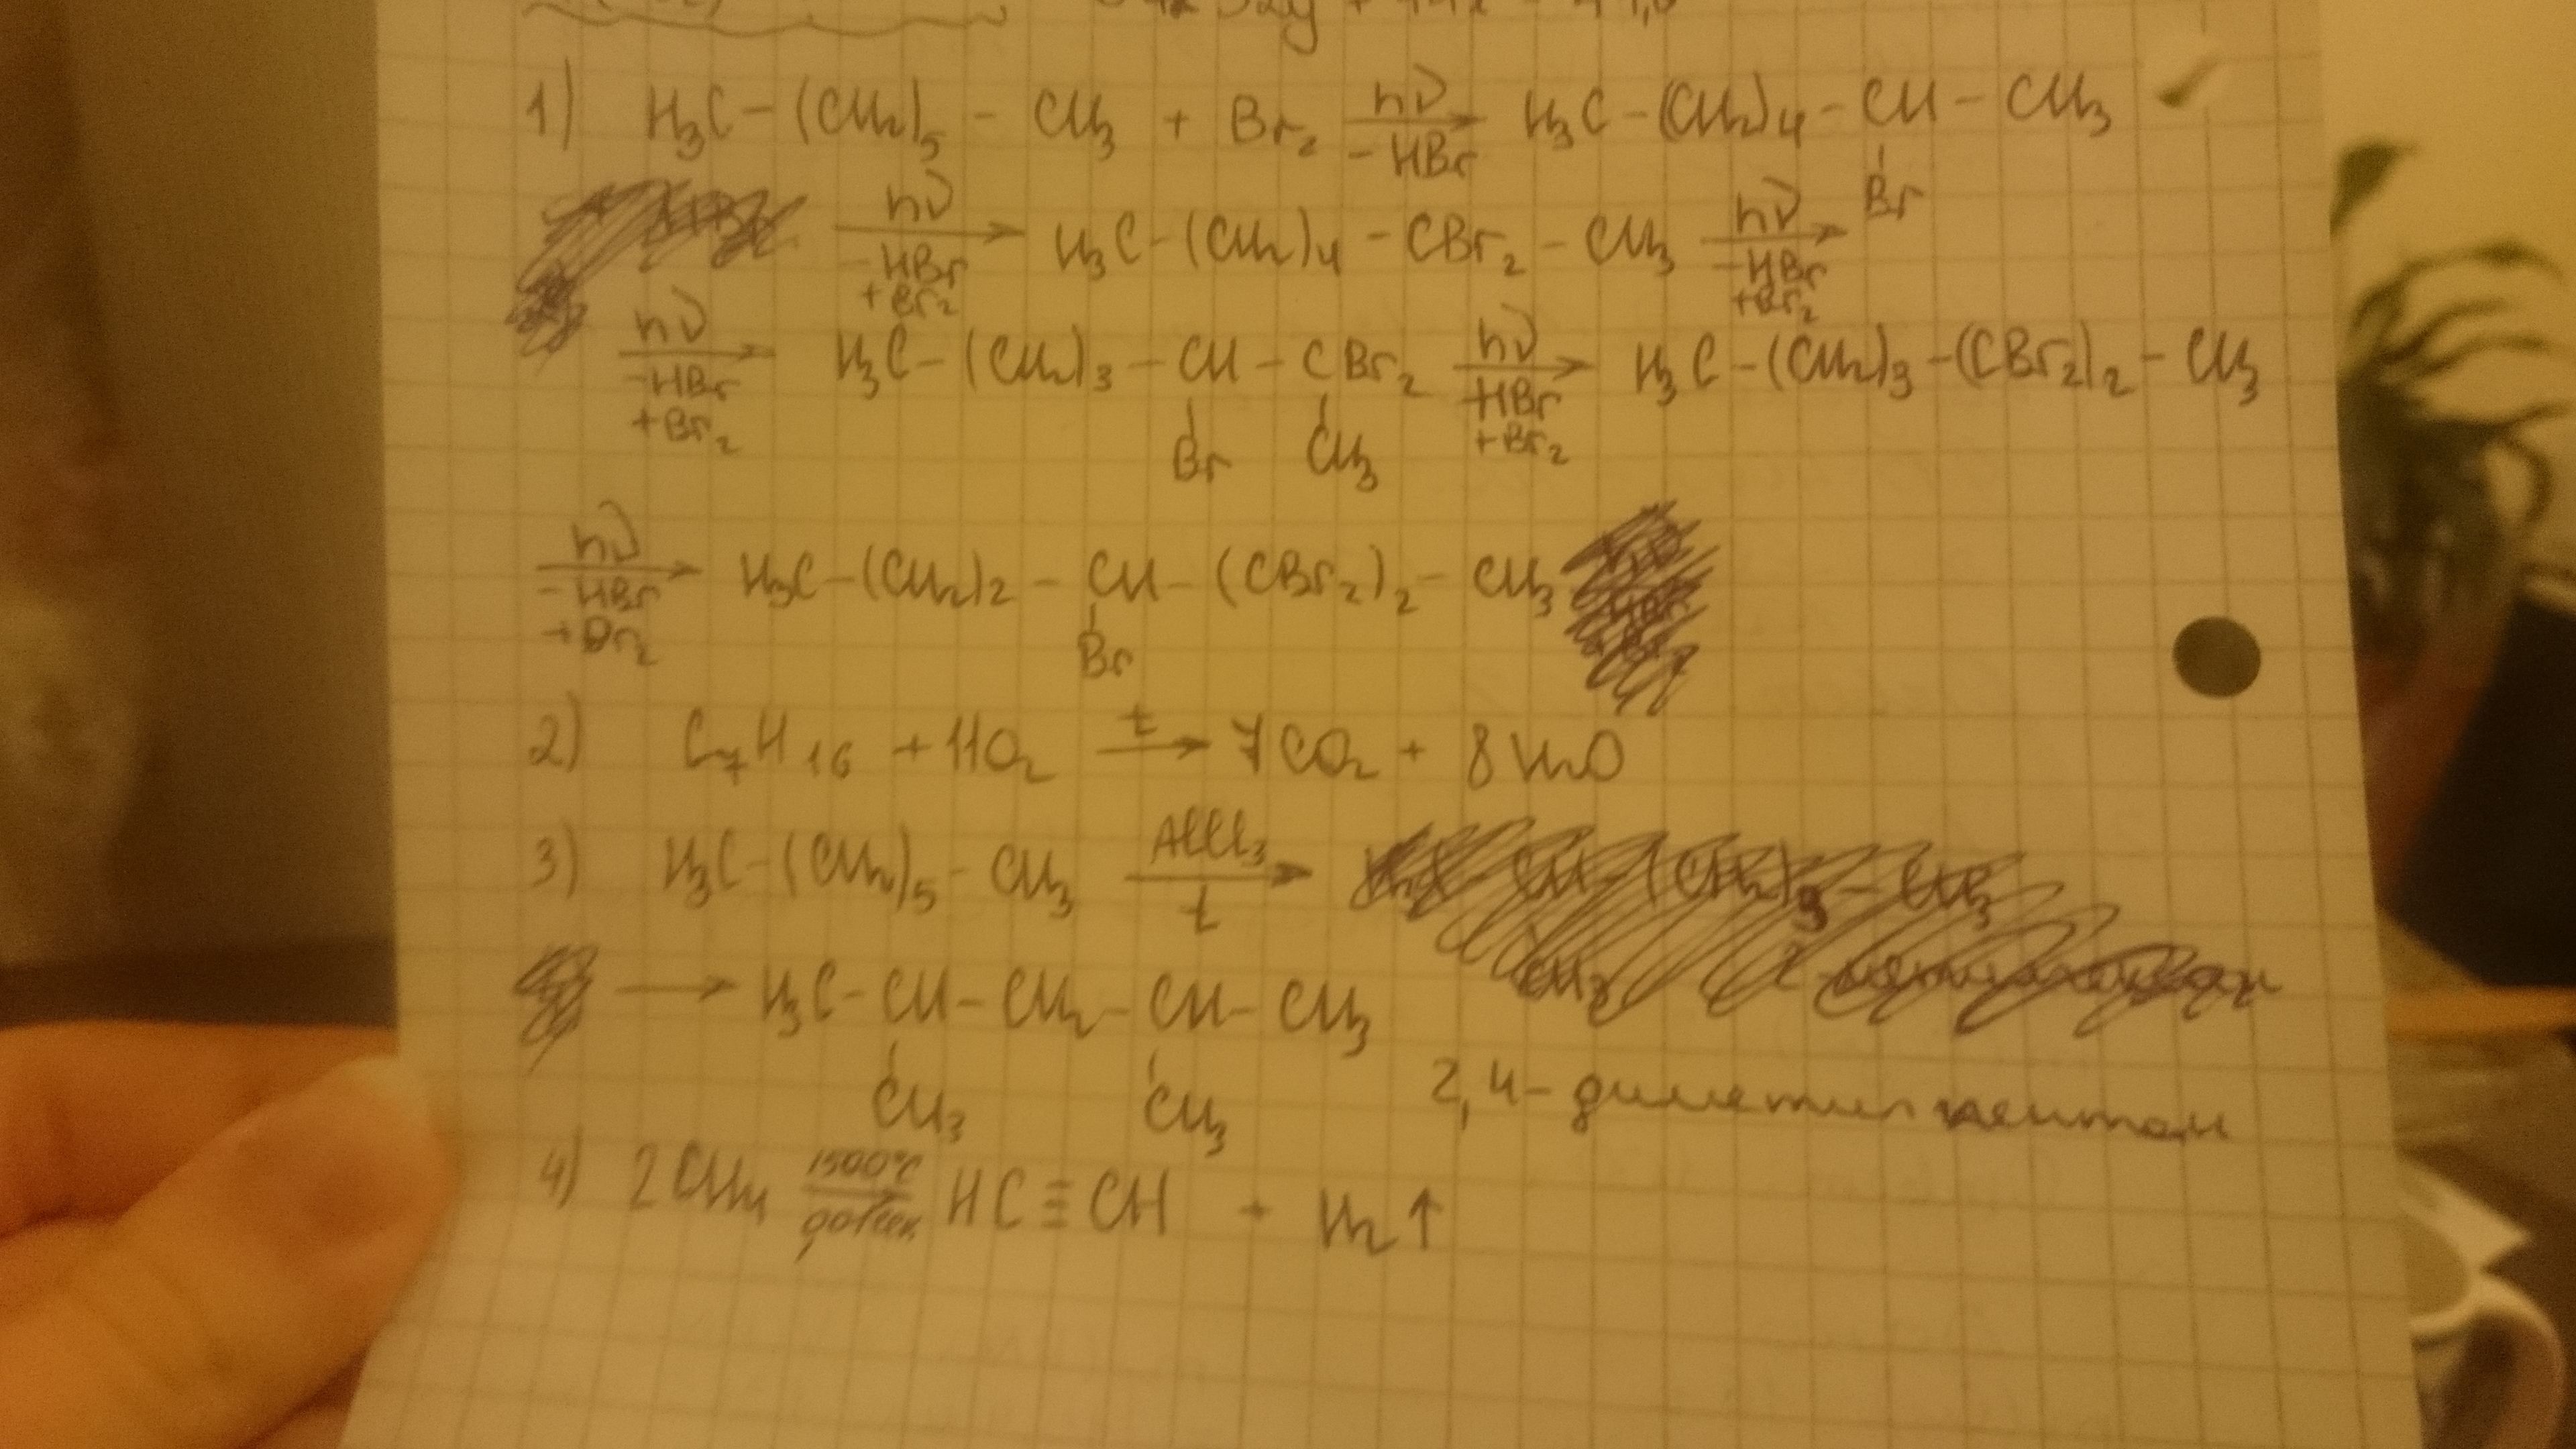 1) H₃C-(CH₂)₅-CH₃ + Br₂ hν -HBr H₃C-(CH₂)₄-CH-CH₃
Br
hν -HBr +Br₂ H₃C-(CH₂)₄-CBr₂-CH₃ hν -HBr +Br₂
hν -HBr +Br₂ H₃C-(CH₂)₃-CH-CBr₂ hν -HBr +Br₂ H₃C-(CH₂)₃-(CBr₂)₂-CH₃
Br CH₃
hν -HBr +Br₂ H₃C-(CH₂)₂-CH-(CBr₂)₂-CH₃
Br
2) C₇H₁₆ + 11O₂ t → 7CO₂ + 8H₂O
3) H₃C-(CH₂)₅-CH₃ AlCl₃ t →
→ H₃C-CH-CH₂-CH-CH₃
CH₃ CH₃ 2,4-диметилпентан
4) 2CH₄ 1500°C HC≡CH + H₂↑